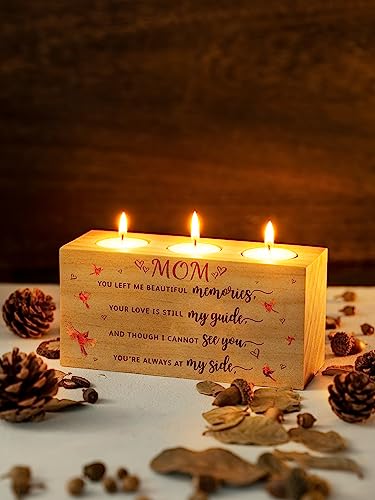 MOM
YOU LEFT ME BEAUTIFUL memories,
YOUR LOVE IS STILL my guide,
AND THOUGH I CANNOT see you,
YOU'RE ALWAYS AT my side,